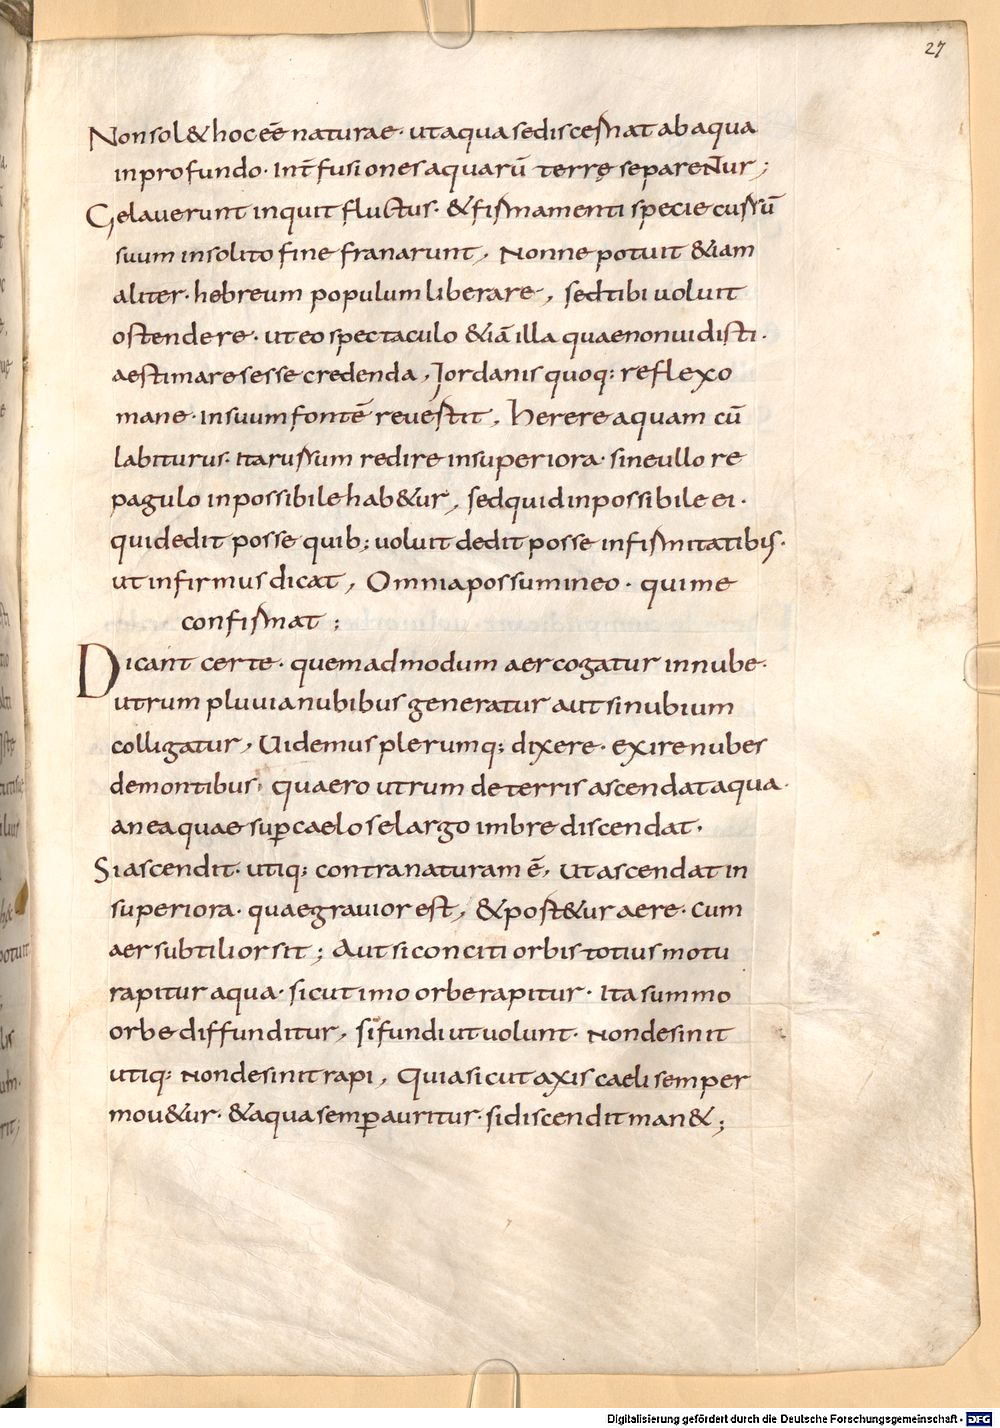 27
Non sol& hoc eē naturae· ut aqua se discernat ab aqua
in profundo· Int̄ fusiones aquarū terrę separeNtur;
Gelauerunt inquit fluctus· & firmamenti specie cursū
suum insolito fine franarunt, Nonne potuit &iam
aliter· hebreum populum liberare, sed tibi uoluit
ostendere· ut eo spectaculo &iā illa quae non uidisti·
aestimares esse credenda, Iordanis quoq: reflexo
mane· in suum fontē reuertit, Herere aquam cū
labiturus· ita rursum redire in superiora· sine ullo re
pagulo inpossibile hab&ur, sed quid inpossibile ei·
qui dedit posse quib; uoluit dedit posse infirmitatibus·
ut infirmus dicat, Omnia possum in eo· qui me
confirmat;
Dicant certe· quemadmodum aer cogatur in nube·
utrum pluuia nubibus generatur aut sinu nubium
colligatur, Uidemus plerumq; dixere· exire nubes
demontibus· quaero utrum de terris ascendat aqua·
an ea quae sup caelos e largo imbre discendat·
Si ascendit· utiq; contra naturam ē, Ut ascendat in
superiora· quae grauior est, & post&ur aere· cum
aer subtilior sit; Aut si conciti orbis totius motu
rapitur aqua· sicut imo orbe rapitur· Ita summo
orbe diffunditur, si fundi ut uolunt· Non desinit
utiq: Non desinit rapi, Quia sicut axis caeli semper
mou&ur· & aqua semp auritur· si discendit man&;
Digitalisierung gefördert durch die Deutsche Forschungsgemeinschaft - DFG